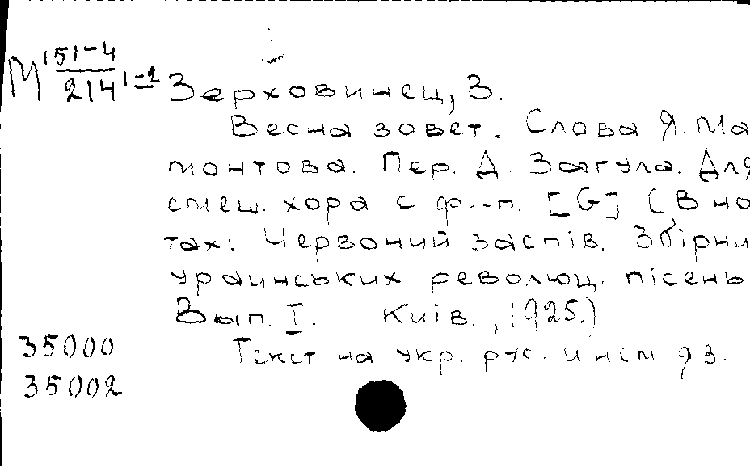 М 151-4/214 1-2 Зерховинец, З.
Весна зовет. Слова Я. Ма
монтова. Пер. Д. Загула. Для
смеш. хора с ф.-п. [G] (В но
тах: Червоний заспів. Збірни
украинських революц. пісень
Вып. I. Київ., 1925.)
35000 Текст на укр. рус. и нем яз.
35002